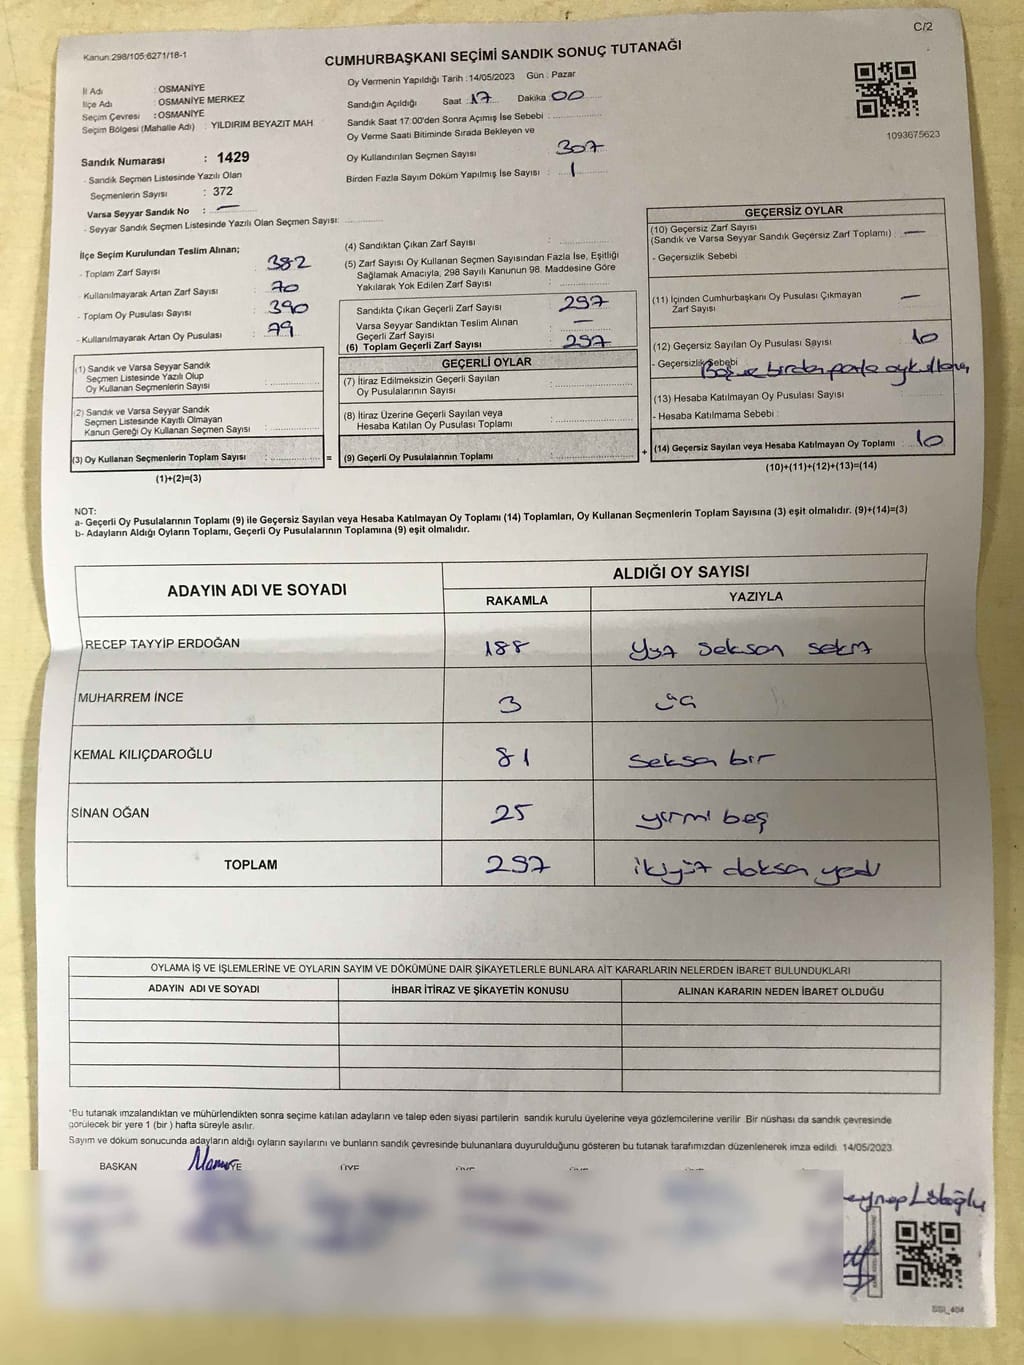 C/2
Kanun:298/105:6271/18-1
CUMHURBAŞKANI SEÇİMİ SANDIK SONUÇ TUTANAĞI
İl Adı : OSMANİYE
İlçe Adı : OSMANİYE MERKEZ
Seçim Çevresi : OSMANİYE
Seçim Bölgesi (Mahalle Adı) : YILDIRIM BEYAZIT MAH
Sandık Numarası : 1429
- Sandık Seçmen Listesinde Yazılı Olan
Seçmenlerin Sayısı : 372
Varsa Seyyar Sandık No : —
- Seyyar Sandık Seçmen Listesinde Yazılı Olan Seçmen Sayısı:
Oy Vermenin Yapıldığı Tarih : 14/05/2023 Gün : Pazar
Sandığın Açıldığı Saat : 17 Dakika : 00
Sandık Saat 17:00'den Sonra Açımış İse Sebebi :
Oy Verme Saati Bitiminde Sırada Bekleyen ve
Oy Kullandırılan Seçmen Sayısı : 307
Birden Fazla Sayım Döküm Yapılmış İse Sayısı : 1
1093675623
İlçe Seçim Kurulundan Teslim Alınan;
- Toplam Zarf Sayısı : 382
- Kullanılmayarak Artan Zarf Sayısı : 70
- Toplam Oy Pusulası Sayısı : 390
- Kullanılmayarak Artan Oy Pusulası : 79
(1) Sandık ve Varsa Seyyar Sandık
Seçmen Listesinde Yazılı Olup
Oy Kullanan Seçmenlerin Sayısı :
(2) Sandık ve Varsa Seyyar Sandık
Seçmen Listesinde Kayıtlı Olmayan
Kanun Gereği Oy Kullanan Seçmen Sayısı :
(3) Oy Kullanan Seçmenlerin Toplam Sayısı : =
(1)+(2)=(3)
(4) Sandıktan Çıkan Zarf Sayısı :
(5) Zarf Sayısı Oy Kullanan Seçmen Sayısından Fazla İse, Eşitliği
Sağlamak Amacıyla, 298 Sayılı Kanunun 98. Maddesine Göre
Yakılarak Yok Edilen Zarf Sayısı :
Sandıkta Çıkan Geçerli Zarf Sayısı : 297
Varsa Seyyar Sandıktan Teslim Alınan
Geçerli Zarf Sayısı : —
(6) Toplam Geçerli Zarf Sayısı : 297
GEÇERLİ OYLAR
(7) İtiraz Edilmeksizin Geçerli Sayılan
Oy Pusulasının Sayısı :
(8) İtiraz Üzerine Geçerli Sayılan veya
Hesaba Katılan Oy Pusulası Toplamı :
(9) Geçerli Oy Pusulalarının Toplamı : +
GEÇERSİZ OYLAR
(10) Geçersiz Zarf Sayısı
(Sandık ve Varsa Seyyar Sandık Geçersiz Zarf Toplamı) : —
- Geçersizlik Sebebi :
(11) İçinden Cumhurbaşkanı Oy Pusulası Çıkmayan
Zarf Sayısı : —
(12) Geçersiz Sayılan Oy Pusulası Sayısı : 10
- Geçersizlik Sebebi : Boş ve birden fazla oy
(13) Hesaba Katılmayan Oy Pusulası Sayısı :
- Hesaba Katılmama Sebebi :
(14) Geçersiz Sayılan veya Hesaba Katılmayan Oy Toplamı : 10
(10)+(11)+(12)+(13)=(14)
NOT:
a- Geçerli Oy Pusulalarının Toplamı (9) ile Geçersiz Sayılan veya Hesaba Katılmayan Oy Toplamı (14) Toplamları, Oy Kullanan Seçmenlerin Toplam Sayısına (3) eşit olmalıdır. (9)+(14)=(3)
b- Adayların Aldığı Oyların Toplamı, Geçerli Oy Pusulalarının Toplamına (9) eşit olmalıdır.
ADAYIN ADI VE SOYADI ALDIĞI OY SAYISI
RAKAMLA YAZIYLA
RECEP TAYYİP ERDOĞAN 188 yüz seksen sekiz
MUHARREM İNCE 3 üç
KEMAL KILIÇDAROĞLU 81 seksen bir
SİNAN OĞAN 25 yirmi beş
TOPLAM 297 ikiyüz doksan yedi
OYLAMA İŞ VE İŞLEMLERİNE VE OYLARIN SAYIM VE DÖKÜMÜNE DAİR ŞİKAYETLERLE BUNLARA AİT KARARLARIN NELERDEN İBARET BULUNDUKLARI
ADAYIN ADI VE SOYADI İHBAR İTİRAZ VE ŞİKAYETİN KONUSU ALINAN KARARIN NEDEN İBARET OLDUĞU
*Bu tutanak imzalandıktan ve mühürlendikten sonra seçime katılan adayların ve talep eden siyasi partilerin sandık kurulu üyelerine veya gözlemcilerine verilir. Bir nüshası da sandık çevresinde
görülecek bir yere 1 (bir) hafta süreyle asılır.
Sayım ve döküm sonucunda adayların aldığı oyların sayılarını ve bunların sandık çevresinde bulunanlara duyurulduğunu gösteren bu tutanak tarafımızdan düzenlenerek imza edildi. 14/05/2023
BAŞKAN ÜYE ÜYE ÜYE ÜYE